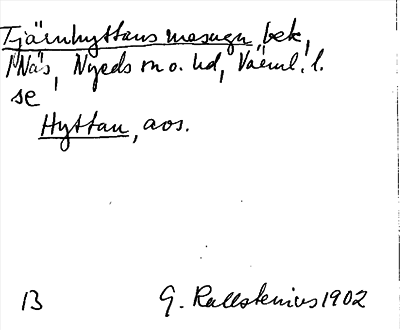 Tjärnhyttans masugn, bek,
i Näs, Nyeds sn o. hd, Värml. l.
se
Hyttan, aos.
13 G. Kallstenius 1902